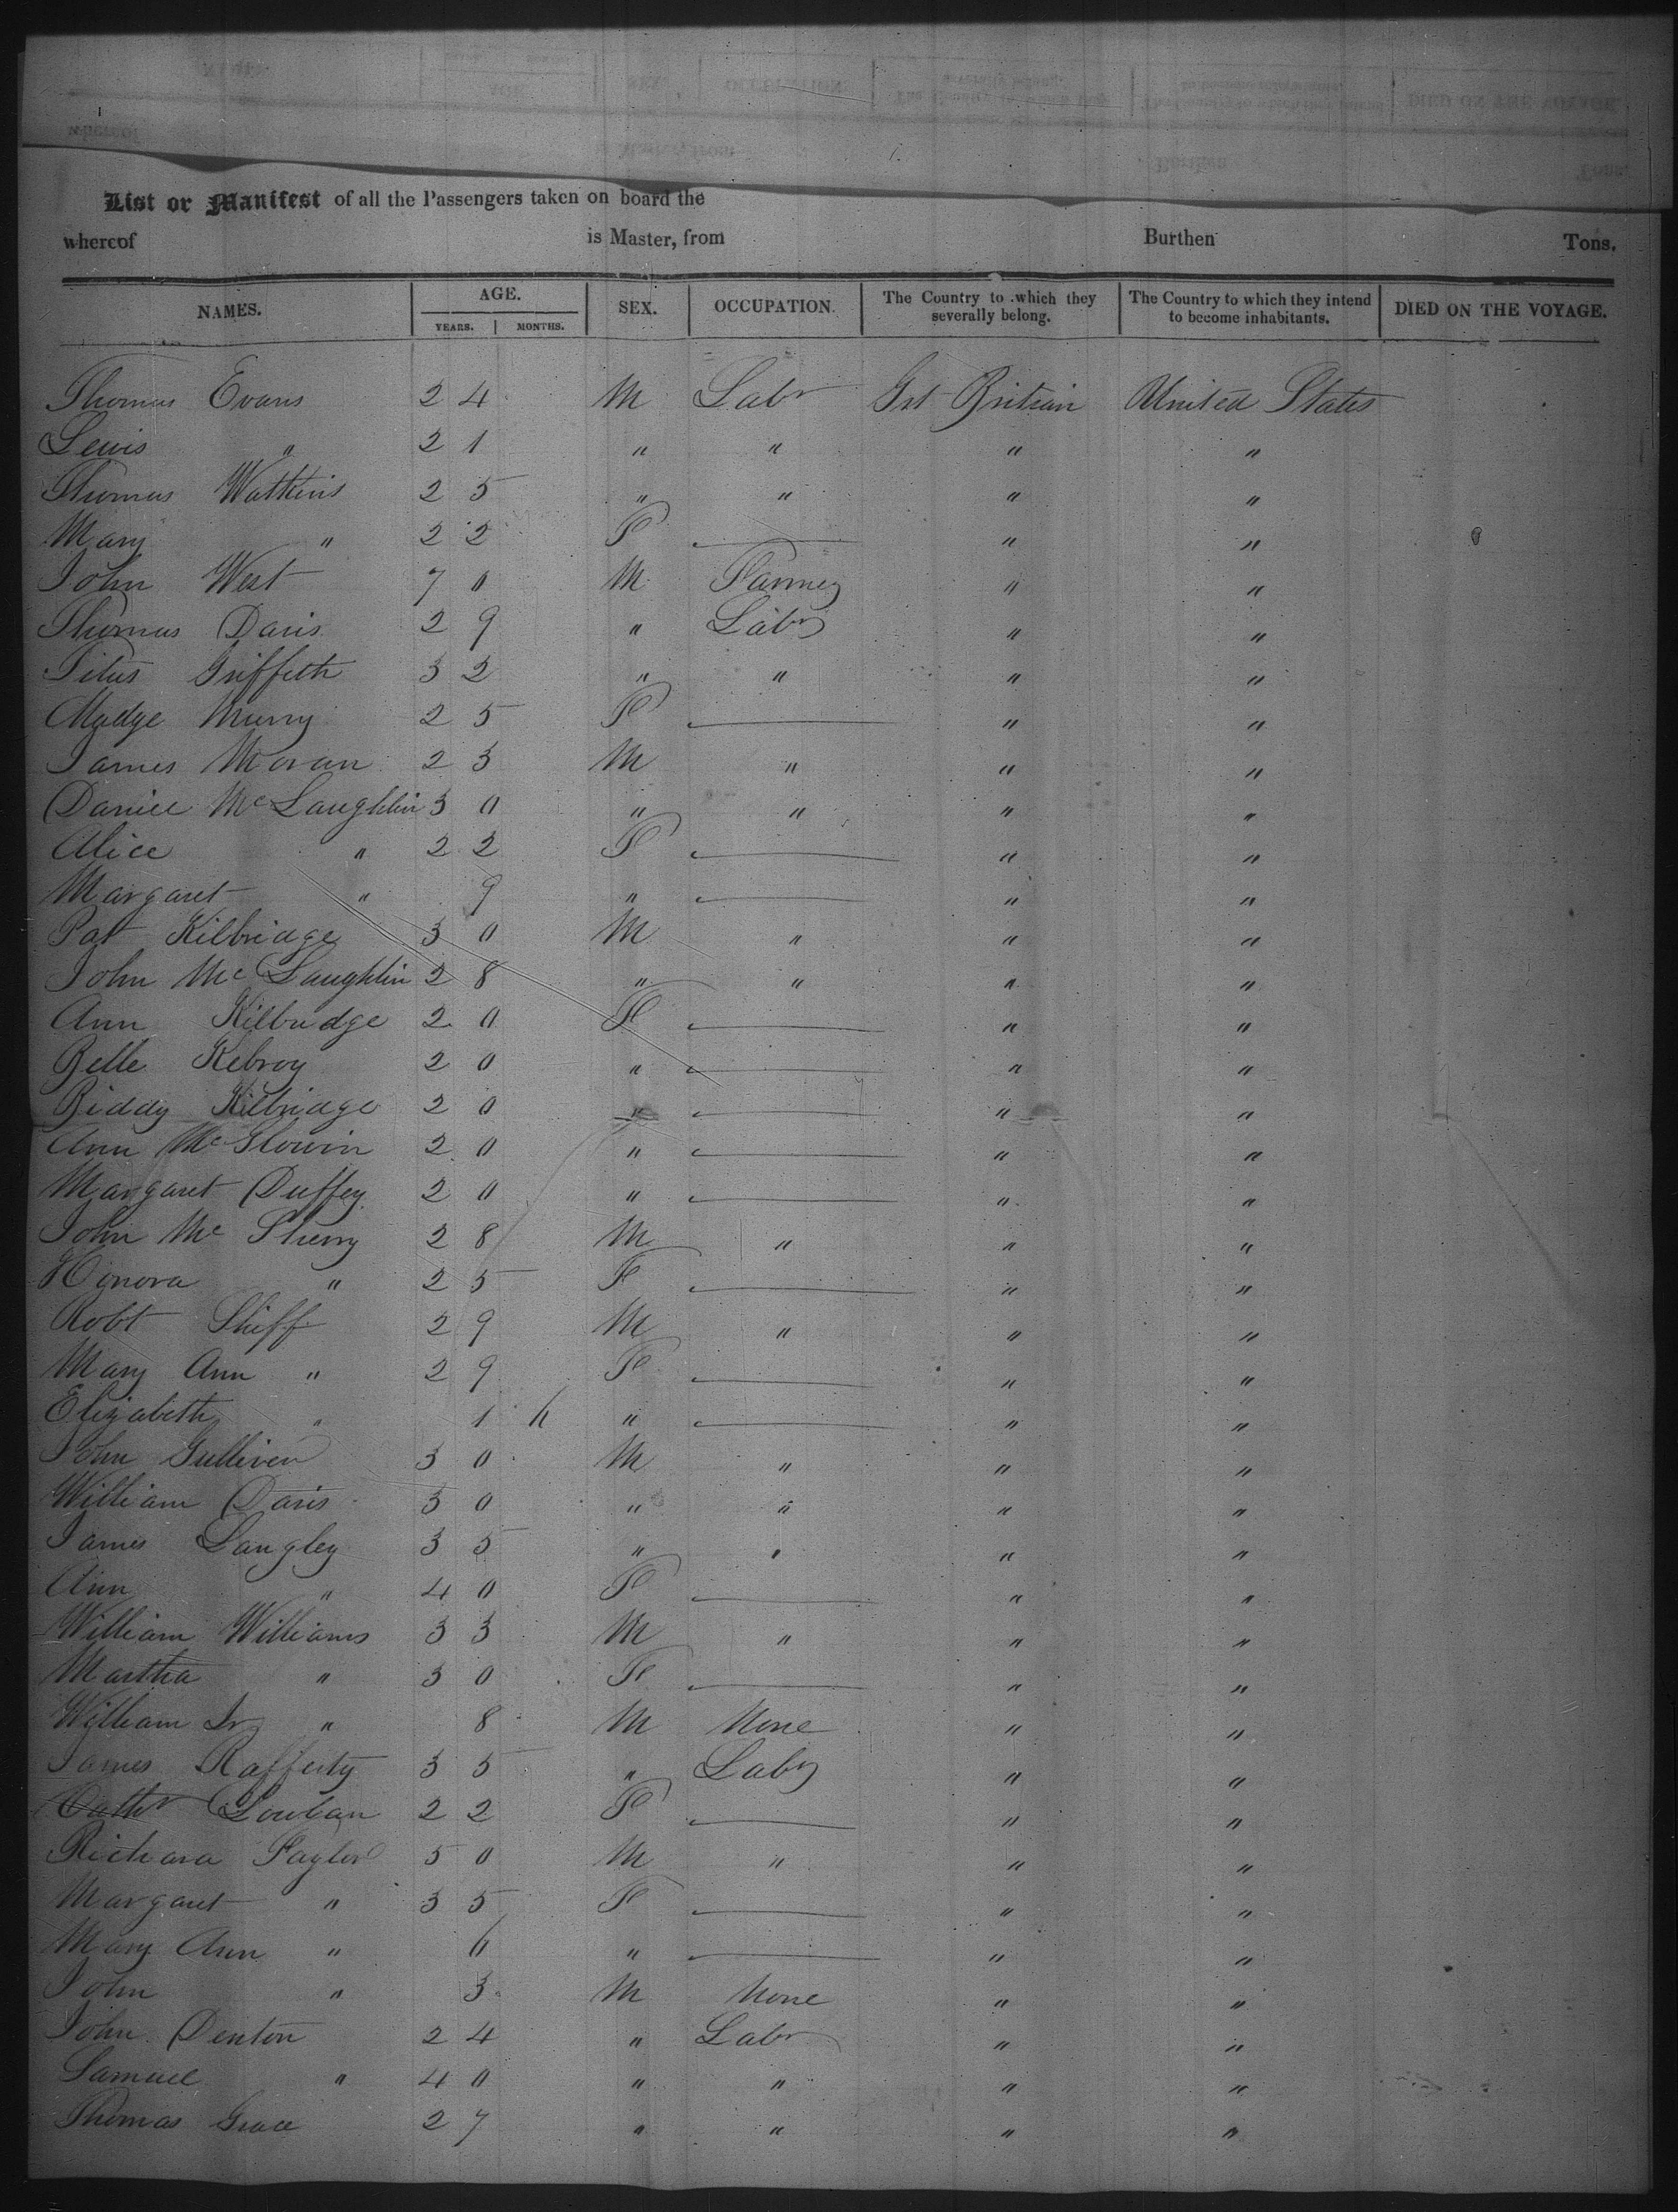 List or Manifest of all the Passengers taken on board the
whereof is Master, from Burthen Tons.
NAMES. AGE. YEARS. MONTHS. SEX. OCCUPATION. The Country to which they severally belong. The Country to which they intend to become inhabitants. DIED ON THE VOYAGE.
Thomas Evans 24 M Labr Grt Britian United States
Lewis " 21 " " " "
Thomas Watkins 25 " " " "
Mary " 22 F " "
John West 70 M Farmer " "
Thomas Davis 29 " Labr " "
Titus Griffeth 32 " " " "
Madge Murry 25 F " "
James Moran 23 M " " "
Daniel McLaughlin 30 " " " "
Alice " 22 F " "
Margaret " 9 " " "
Pat Kilbridge 30 M " " "
John McLaughlin 28 " " " "
Ann Kilbridge 20 F " "
Belle Kebroy 20 " " "
Biddy Kilbridge 20 " " "
Ann Mc 20 " " "
Margaret Duffey 20 " " "
John Mc Sherry 28 M " " "
Honora " 25 F " "
Robt Shiff 29 M " " "
Mary Ann " 29 F " "
Elizabeth " 1 6 " " "
John Gulliver 30 M " " "
William Davis 30 " " " "
James Langley 35 " " " "
Ann " 40 F " "
William Williams 33 M " " "
Martha " 30 F " "
William Jr " 8 M None " "
James Rafferty 35 " Labr " "
Cathr 22 F " "
Richard Taylor 50 M " " "
Margaret " 35 F " "
Mary Ann " 6 " " "
John " 3 M None " "
John Denton 24 " Labr " "
Samuel " 40 " " " "
Thomas Grace 27 " " " "